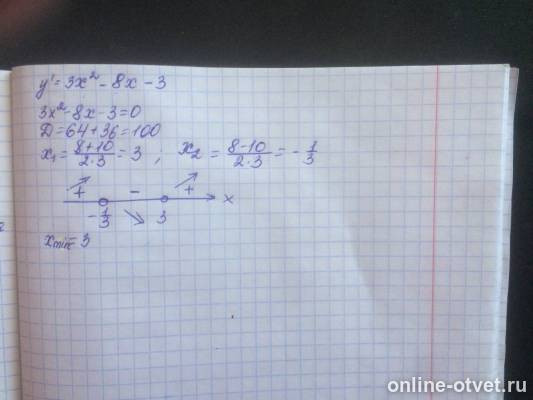 y' = 3x² - 8x - 3
3x² - 8x - 3 = 0
D = 64 + 36 = 100
x₁ = (8+10)/(2·3) = 3 ; x₂ = (8-10)/(2·3) = -1/3
+ - + x
-1/3 3
xmin = 3
online-otvet.ru